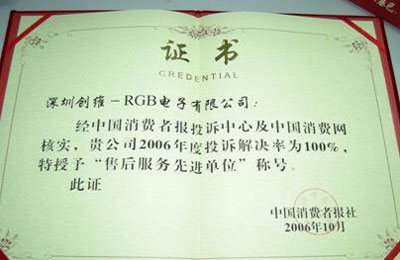 证书
CREDENTIAL
深圳创维－RGB电子有限公司：
经中国消费者报投诉中心及中国消费网
核实，贵公司2006年度投诉解决率为100%，
特授予“售后服务先进单位”称号。
此证
中国消费者报社
2006年10月